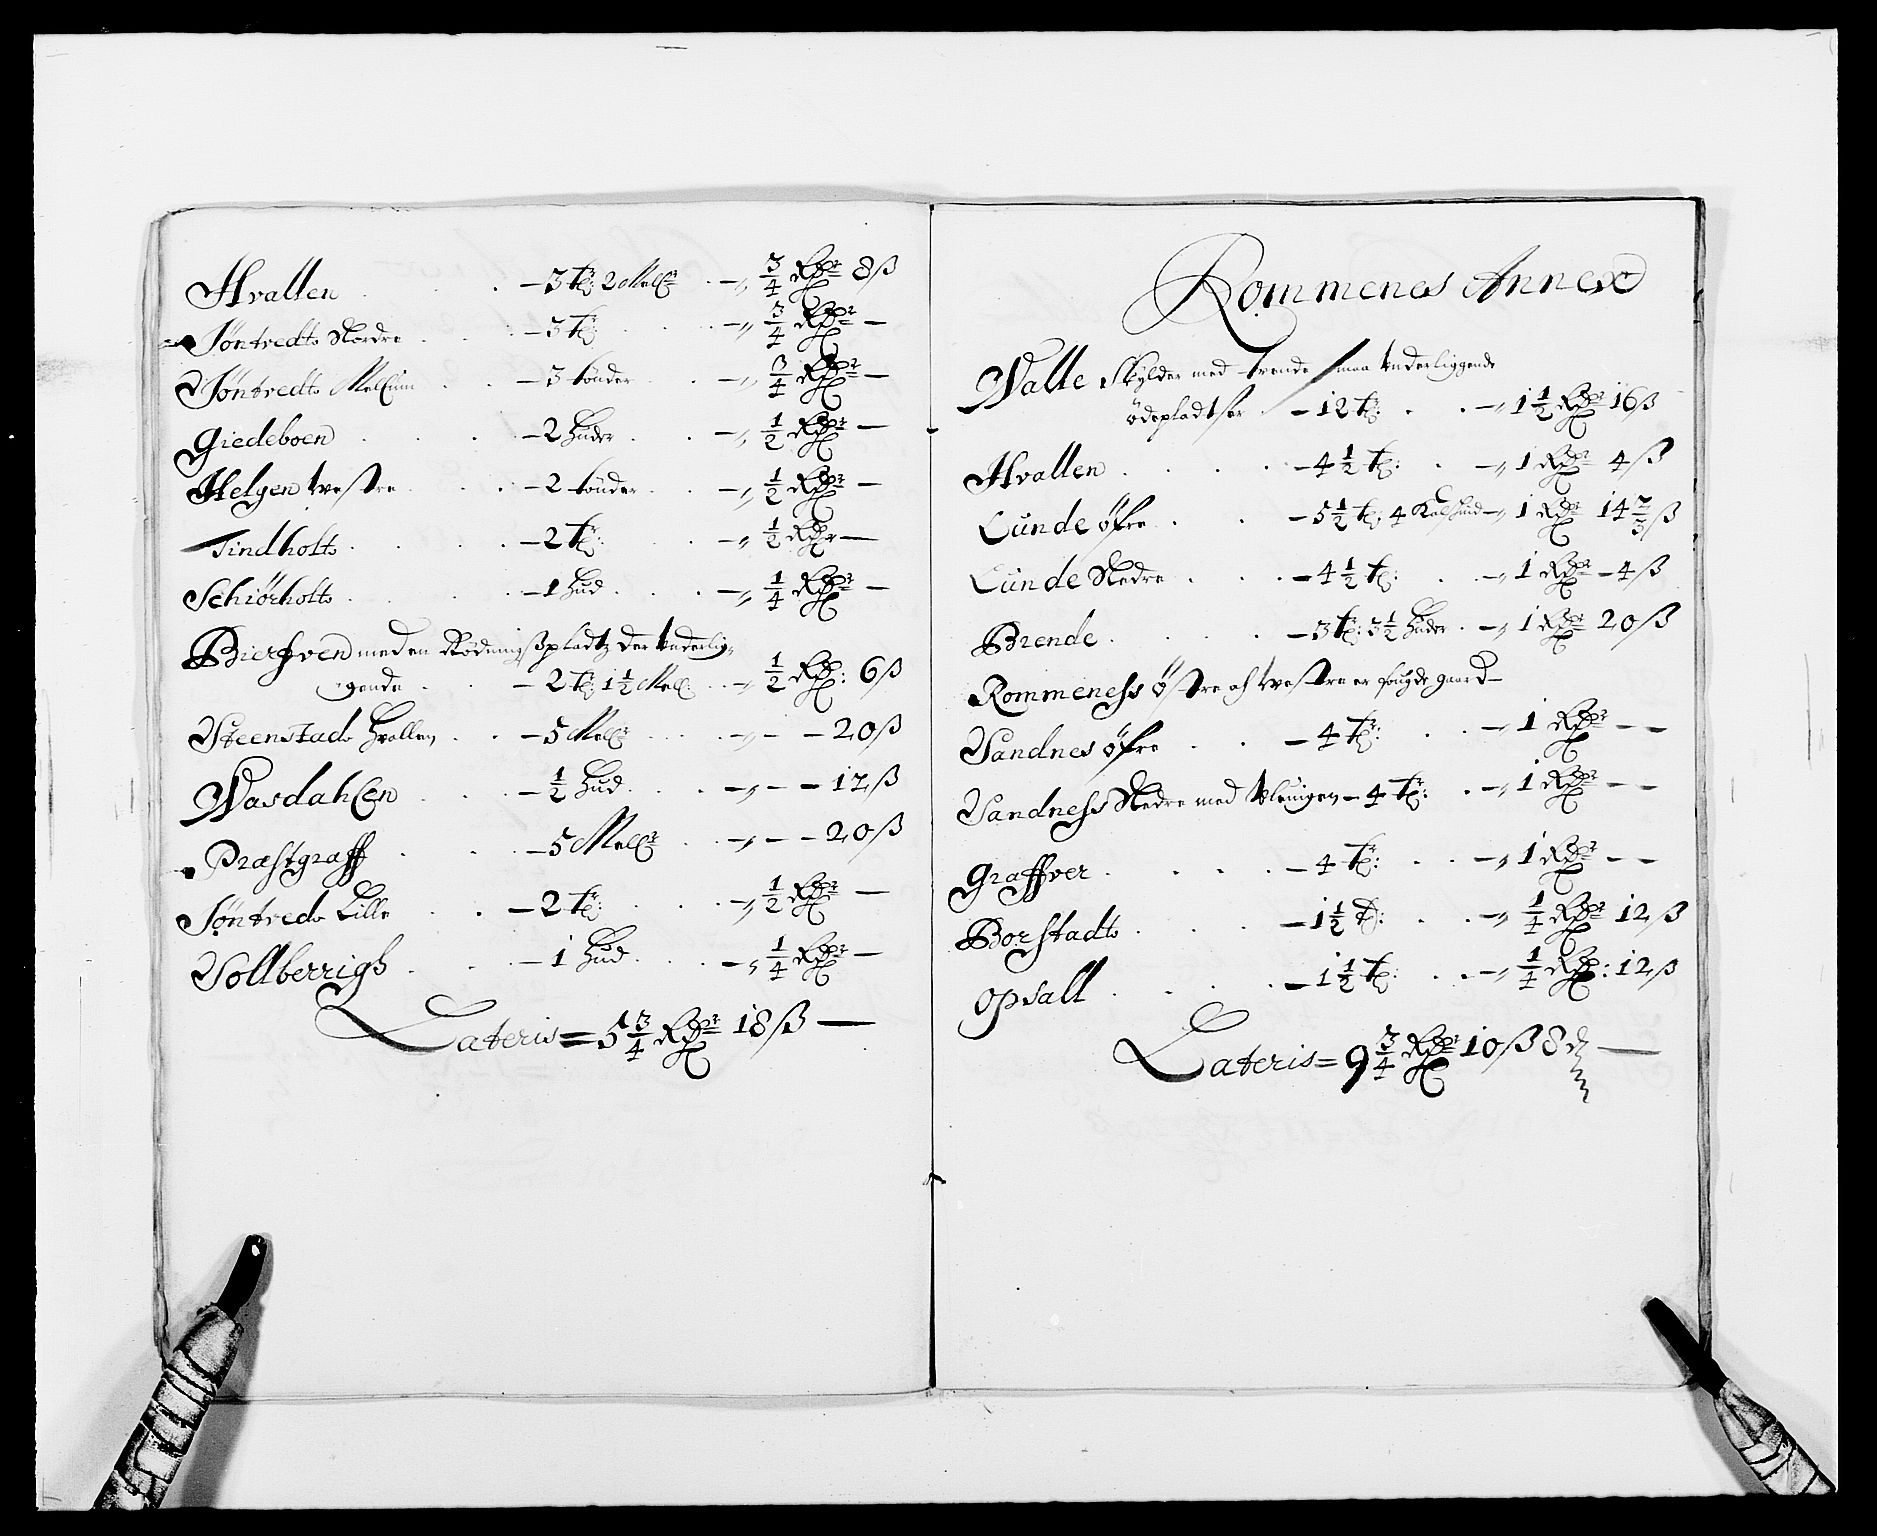 Hvallen . . . – 3 tr: 2 Mellr . –„ 3/4 Rdr 8ß
Søntvedt Nordre . . . – 3 tr: . . . –„ 3/4 Rdr –
Søntvedt Mellum . . – 3 tønder . . –„ 3/4 Rdr –
Giedeboen . . . . – 2 huder . . –„ 1/2 Rdr –
Helgen Westre . . . – 2 tønder . . –„ 1/2 Rdr –
Tindholt . . . . – 2 tr: . . –„ 1/2 Rdr –
Schiørholt . . . . – 1 hud . . . –„ 1/4 Rdr –
Bierfven med en Rødningßpladtz der Underlig-
gende . . – 2 tr: 1 1/2 Mell . . –„ 1/2 Rdr: 6ß
Steenstad Hvallen . . – 5 Mellr . . . –„ – – 20ß
Wasdahlen . . . – 1/2 hud . . . –„ – – 12ß
Præstgraff . . . – 5 Mellr . . –„ – – 20ß
Søntved Lille . . – 2 tr: . . . –„ 1/2 Rdr –
Vollberrigh . . . – 1 hud . . . –„ 1/4 Rdr –
Lateris = 5 3/4 Rdr 18ß –
Rommenes Annex
Walle Skylder med trende smaa Underliggende
ødepladtser . – 12 tr: . . –„ 1 1/2 Rdr 16ß
Hvallen . . . . – 4 1/2 tr: . –„ 1 Rdr 4ß
Lunde øfre . . – 5 1/2 tr: 4 Kalfhud –„ 1 Rdr 14 2/3ß
Lunde Nedre . . . – 4 1/2 tr: . . –„ 1 Rdr – 4ß
Brende . . . . – 3 tr: 3 1/2 huder . –„ 1 Rdr 20ß
Rommeness østre och Westre er fougde gaard –
Vandnes øfre . . – 4 tr: . . –„ 1 Rdr – –
Vandness Nedre med – 4 tr: . –„ 1 Rdr – –
Graffver . . . . – 4 tr: . . –„ 1 Rdr – –
Borstadt . . . – 1 1/2 tr: . . –„ 1/4 Rdr 12ß
Opsall . . . . – 1 1/2 tr: . . –„ 1/4 Rdr: 12ß
Lateris = 9 3/4 Rdr 10ß 8 d –